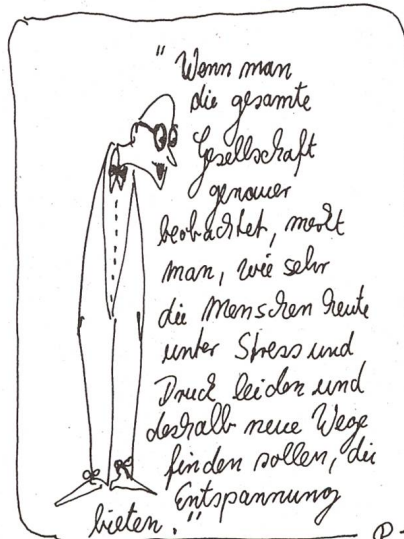 "Wenn man
die gesamte
Gesellschaft
genauer
beobachtet, merkt
man, wie sehr
die Menschen heute
unter Stress und
Druck leiden und
deshalb neue Wege
finden sollen, die
Entspannung
bieten."